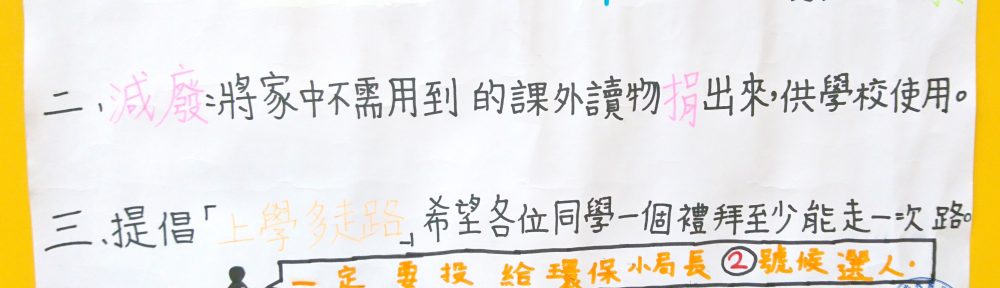 二、減廢:將家中不需用到的課外讀物捐出來,供學校使用。
三、提倡「上學多走路」希望各位同學一個禮拜至少能走一次路。
一定要投給環保小局長②號候選人.